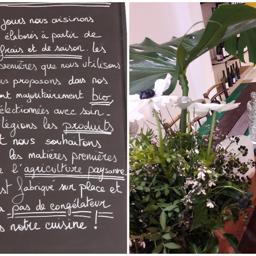 jours nous cuisinons
élaborés à partir de
frais et de saison. les
premières que nous utilisons
us proposons dans nos
ont majoritairement bio
sélectionnées avec soin.
légions les produits
et nous souhaitons
les matières premières
e l'agriculture paysanne.
est fabriqué sur place et
a pas de congélateur
s notre cuisine !